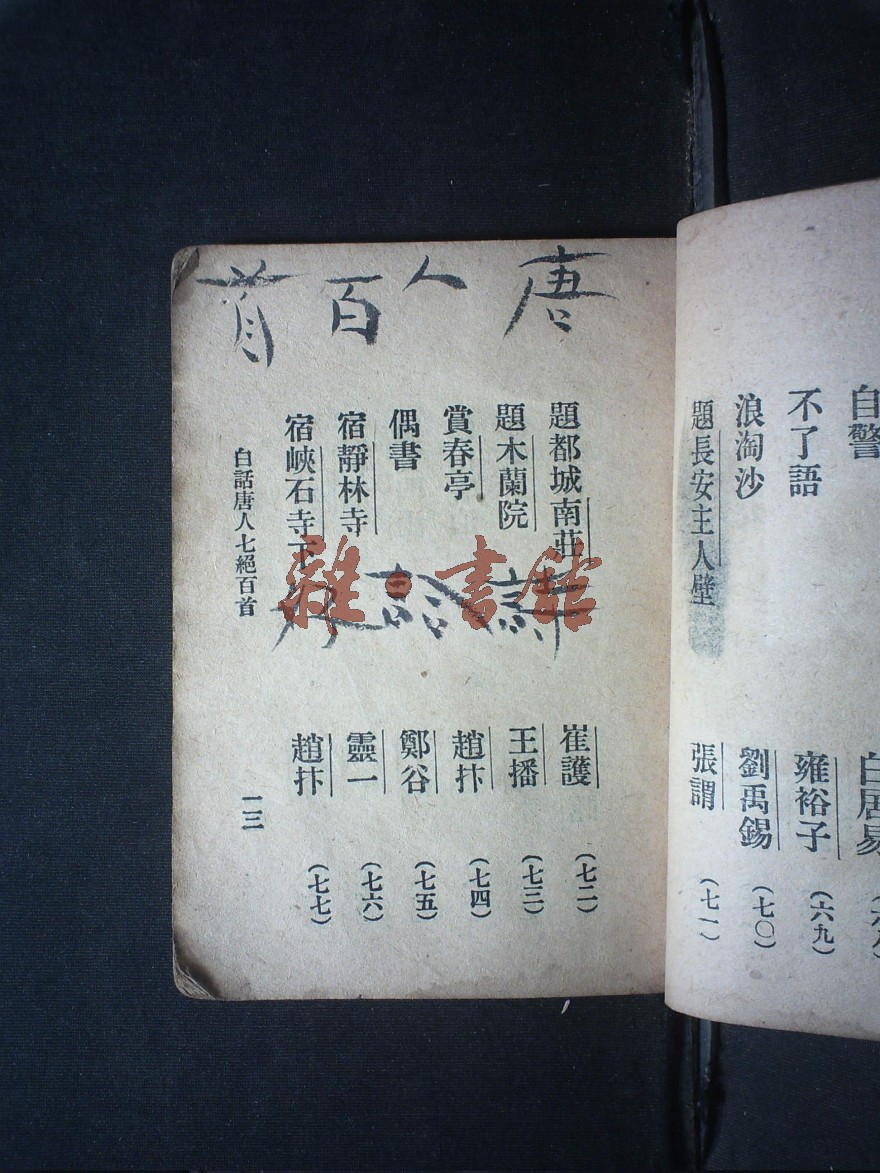 自警 白居易
不了語 雍裕子 (六九)
浪淘沙 劉禹錫 (七〇)
題長安主人壁 張謂 (七一)
唐人百首
題都城南莊 崔護 (七二)
題木蘭院 王播 (七三)
賞春亭 趙抃 (七四)
偶書 鄭谷 (七五)
宿靜林寺 靈一 (七六)
宿峽石寺下 趙抃 (七七)
詩
白話唐人七絕百首
一三
雜·書館